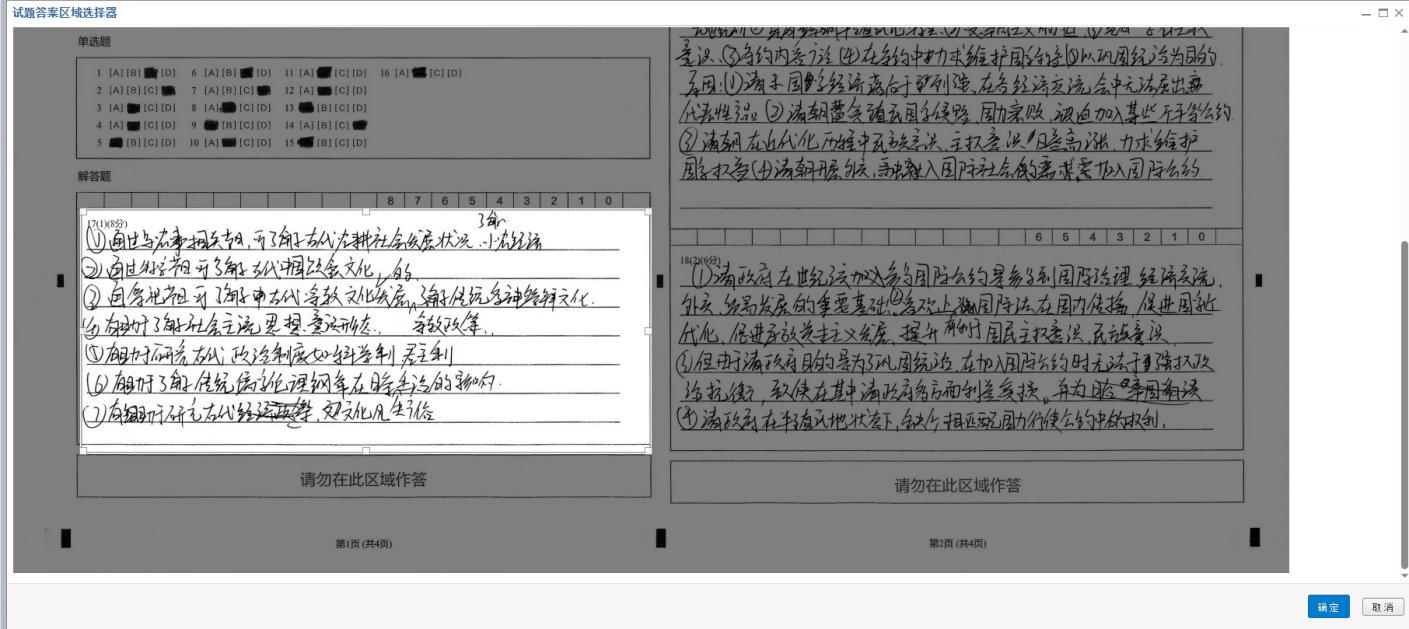 试题答案区域选择器
单选题
1 [A] [B] [D] 6 [A] [B] [D] 11 [A] [C] [D] 16 [A] [C] [D]
2 [A] [B] [C] 7 [A] [B] [C] 12 [A] [C] [D]
3 [A] [C] [D] 8 [A] [C] [D] 13 [B] [C] [D]
4 [A] [C] [D] 9 [B] [C] [D] 14 [A] [B] [C]
5 [B] [C] [D] 10 [A] [C] [D] 15 [B] [C] [D]
解答题
8 7 6 5 4 3 2 1 0
17(1)(8分)
了解
(1)通过与农事相关节日,可了解古代农耕社会发展状况 小农经济
(2)通过 节日可了解古代中国饮食文化 的
(3) 节日可了解中古代宗教文化发展,了解传统 文化.
(4)有助于了解社会主流思想、意识形态. 宗教政策.
(5)有助于研究古代政治制度如科举制 君主制
(6)有助于了解传统儒家伦理纲常在 的影响.
(7)有助于研究古代经济 文化风 俗
请勿在此区域作答
第1页 (共4页)
意识.(3)条约内容 (4)在条约中力求维护国家 (5)以巩固统治为目的.
原因:(1)清末国家经济落后于列强,在各经济交流会中无法展出
代表性 (2)清朝 国力衰败,被迫加入某些不平等公约.
(3)清朝在近代化历程中民族意识、主权意识日益高涨,力求维护
国家权益(4)清朝开展外交, 入国际社会的需求,需加入国际公约
6 5 4 3 2 1 0
18(2)(6分)
(1)清政府在世纪 加入 国际公约是参与到国际治理、经济交流、
外交、贸易发展的重要基础. 国际法在国内传播,促进国 近
代化,促进 主义发展,提升 有利于国民主权意识、民族意识
(3)但由于清政府目的是为了巩固统治,在加入国际公约时无法于 强权政
治抗衡,致使在其中清政府多方面利益受损,并为
(4)清政府在半殖民地状态下,缺少相匹配国力行使公约中的权利.
请勿在此区域作答
第2页 (共4页)
确定
取消